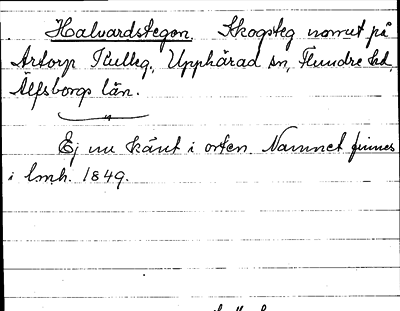 Halvardstegen. Skogsteg norrut på
Artorp Tulleg., Upphärad sn, Flundre hd,
Älfsborgs län.
Ej nu känt i orten. Namnet finnes
i lmh. 1849.